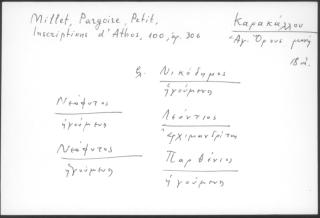 Millet, Pargoire, Petit,
Inscriptions d'Athos, 100, ἀρ. 306
Καρακάλλου
Ἁγ. Ὄρους μονή
18 αἰ.
Νικόδημος
ἡγούμενος
Νεόφυτος
ἡγούμενος
Λεόντιος
ἀρχιμανδρίτης
Νεόφυτος
ἡγούμενος
Παρθένιος
ἡγούμενος